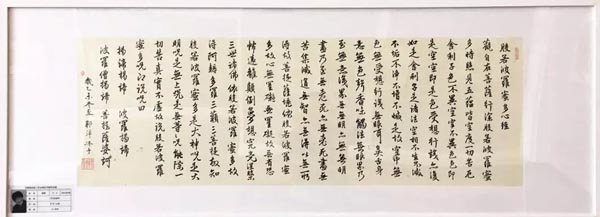 般若波羅蜜多心经
觀自在菩薩行深般若波羅蜜
多時照見五蕴皆空度一切苦厄
舍利子色不異空空不異色色即
是空空即是色受想行識亦復
如是舍利子是諸法空相不生不滅
不垢不淨不增不减是故空中無
色無受想行識無眼耳鼻舌身
意無色聲香味觸法無眼界乃
至無意識界無無明亦無無明
盡乃至無老死亦無老死盡無
苦集滅道無智亦無得以無所
得故菩提薩埵依般若波羅蜜
多故心無罣礙無罣礙故無有恐
怖遠離顛倒夢想究竟涅槃
三世諸佛依般若波羅蜜多故
得阿耨多羅三藐三菩提故知
般若波羅蜜多是大神咒是大
明咒是無上咒是無等等咒能除一
切苦真實不虚故説般若波羅
蜜多咒即説咒曰
揭諦揭諦 波羅揭諦
波羅僧揭諦 菩提薩婆訶